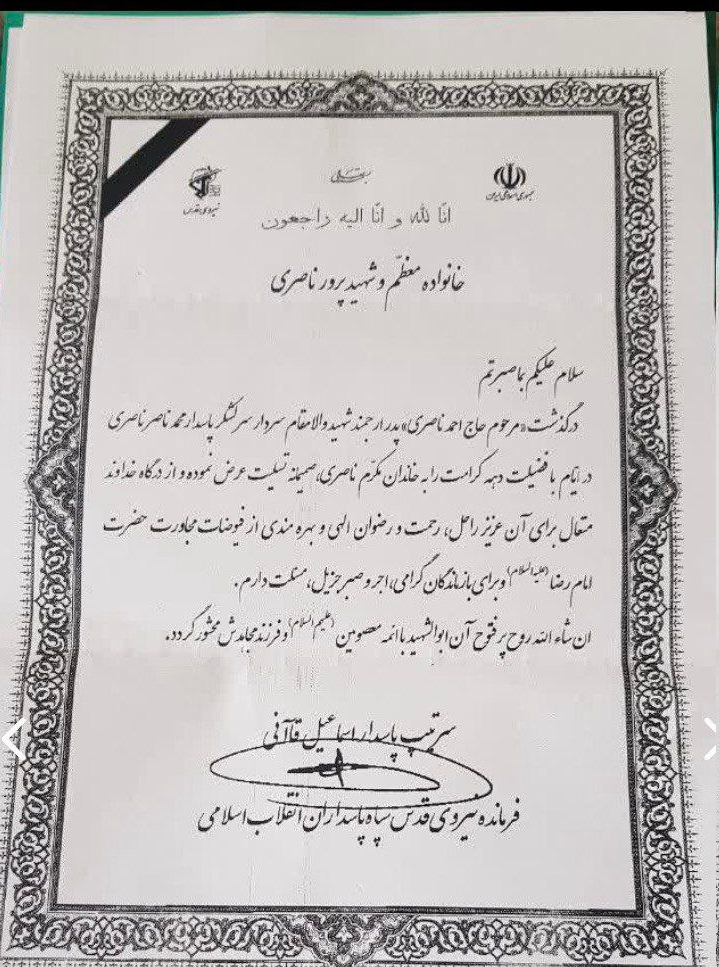 بسمه تعالی
جمهوری اسلامی ایران
نیروی قدس
انّا لله و انّا الیه راجعون
خانواده معظّم و شهید پرور ناصری
سلام علیکم بما صبرتم
درگذشت «مرحوم حاج احمد ناصری» پدر ارجمند شهید والامقام سردار سرلشکر پاسدار محمد ناصر ناصری
در ایّام با فضیلت دهه کرامت را به خاندان مکرّم ناصری، صمیمانه تسلیت عرض نموده و از درگاه خداوند
متعال برای آن عزیز راحل، رحمت و رضوان الهی و بهره مندی از فیوضات مجاورت حضرت
امام رضا (علیه السلام) و برای بازماندگان گرامی، اجر و صبر جزیل، مسئلت دارم.
ان شاء الله روح پر فتوح آن ابوالشهید با ائمه معصومین (علیهم السلام) و فرزند مجاهدش محشور گردد.
سرتیپ پاسدار اسماعیل قاآنی
فرمانده نیروی قدس سپاه پاسداران انقلاب اسلامی